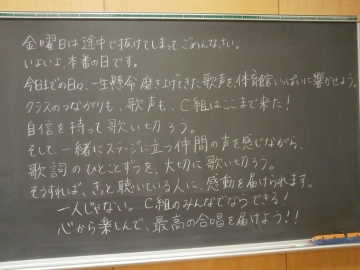 金曜日は途中で抜けてしまってごめんなさい。
いよいよ、本番の日です。
今日までの日々、一生懸命磨き上げてきた歌声を、体育館いっぱいに響かせよう。
クラスのつながりも、歌声も、C組はここまで来た!
自信を持って歌い切ろう。
そして、一緒にステージに立つ仲間の声を感じながら、
歌詞のひとことずつを、大切に歌い切ろう。
そうすれば、きっと聴いている人に、感動を届けられます。
一人じゃない。C組のみんなでならできる!
心から楽しんで、最高の合唱を届けよう!!